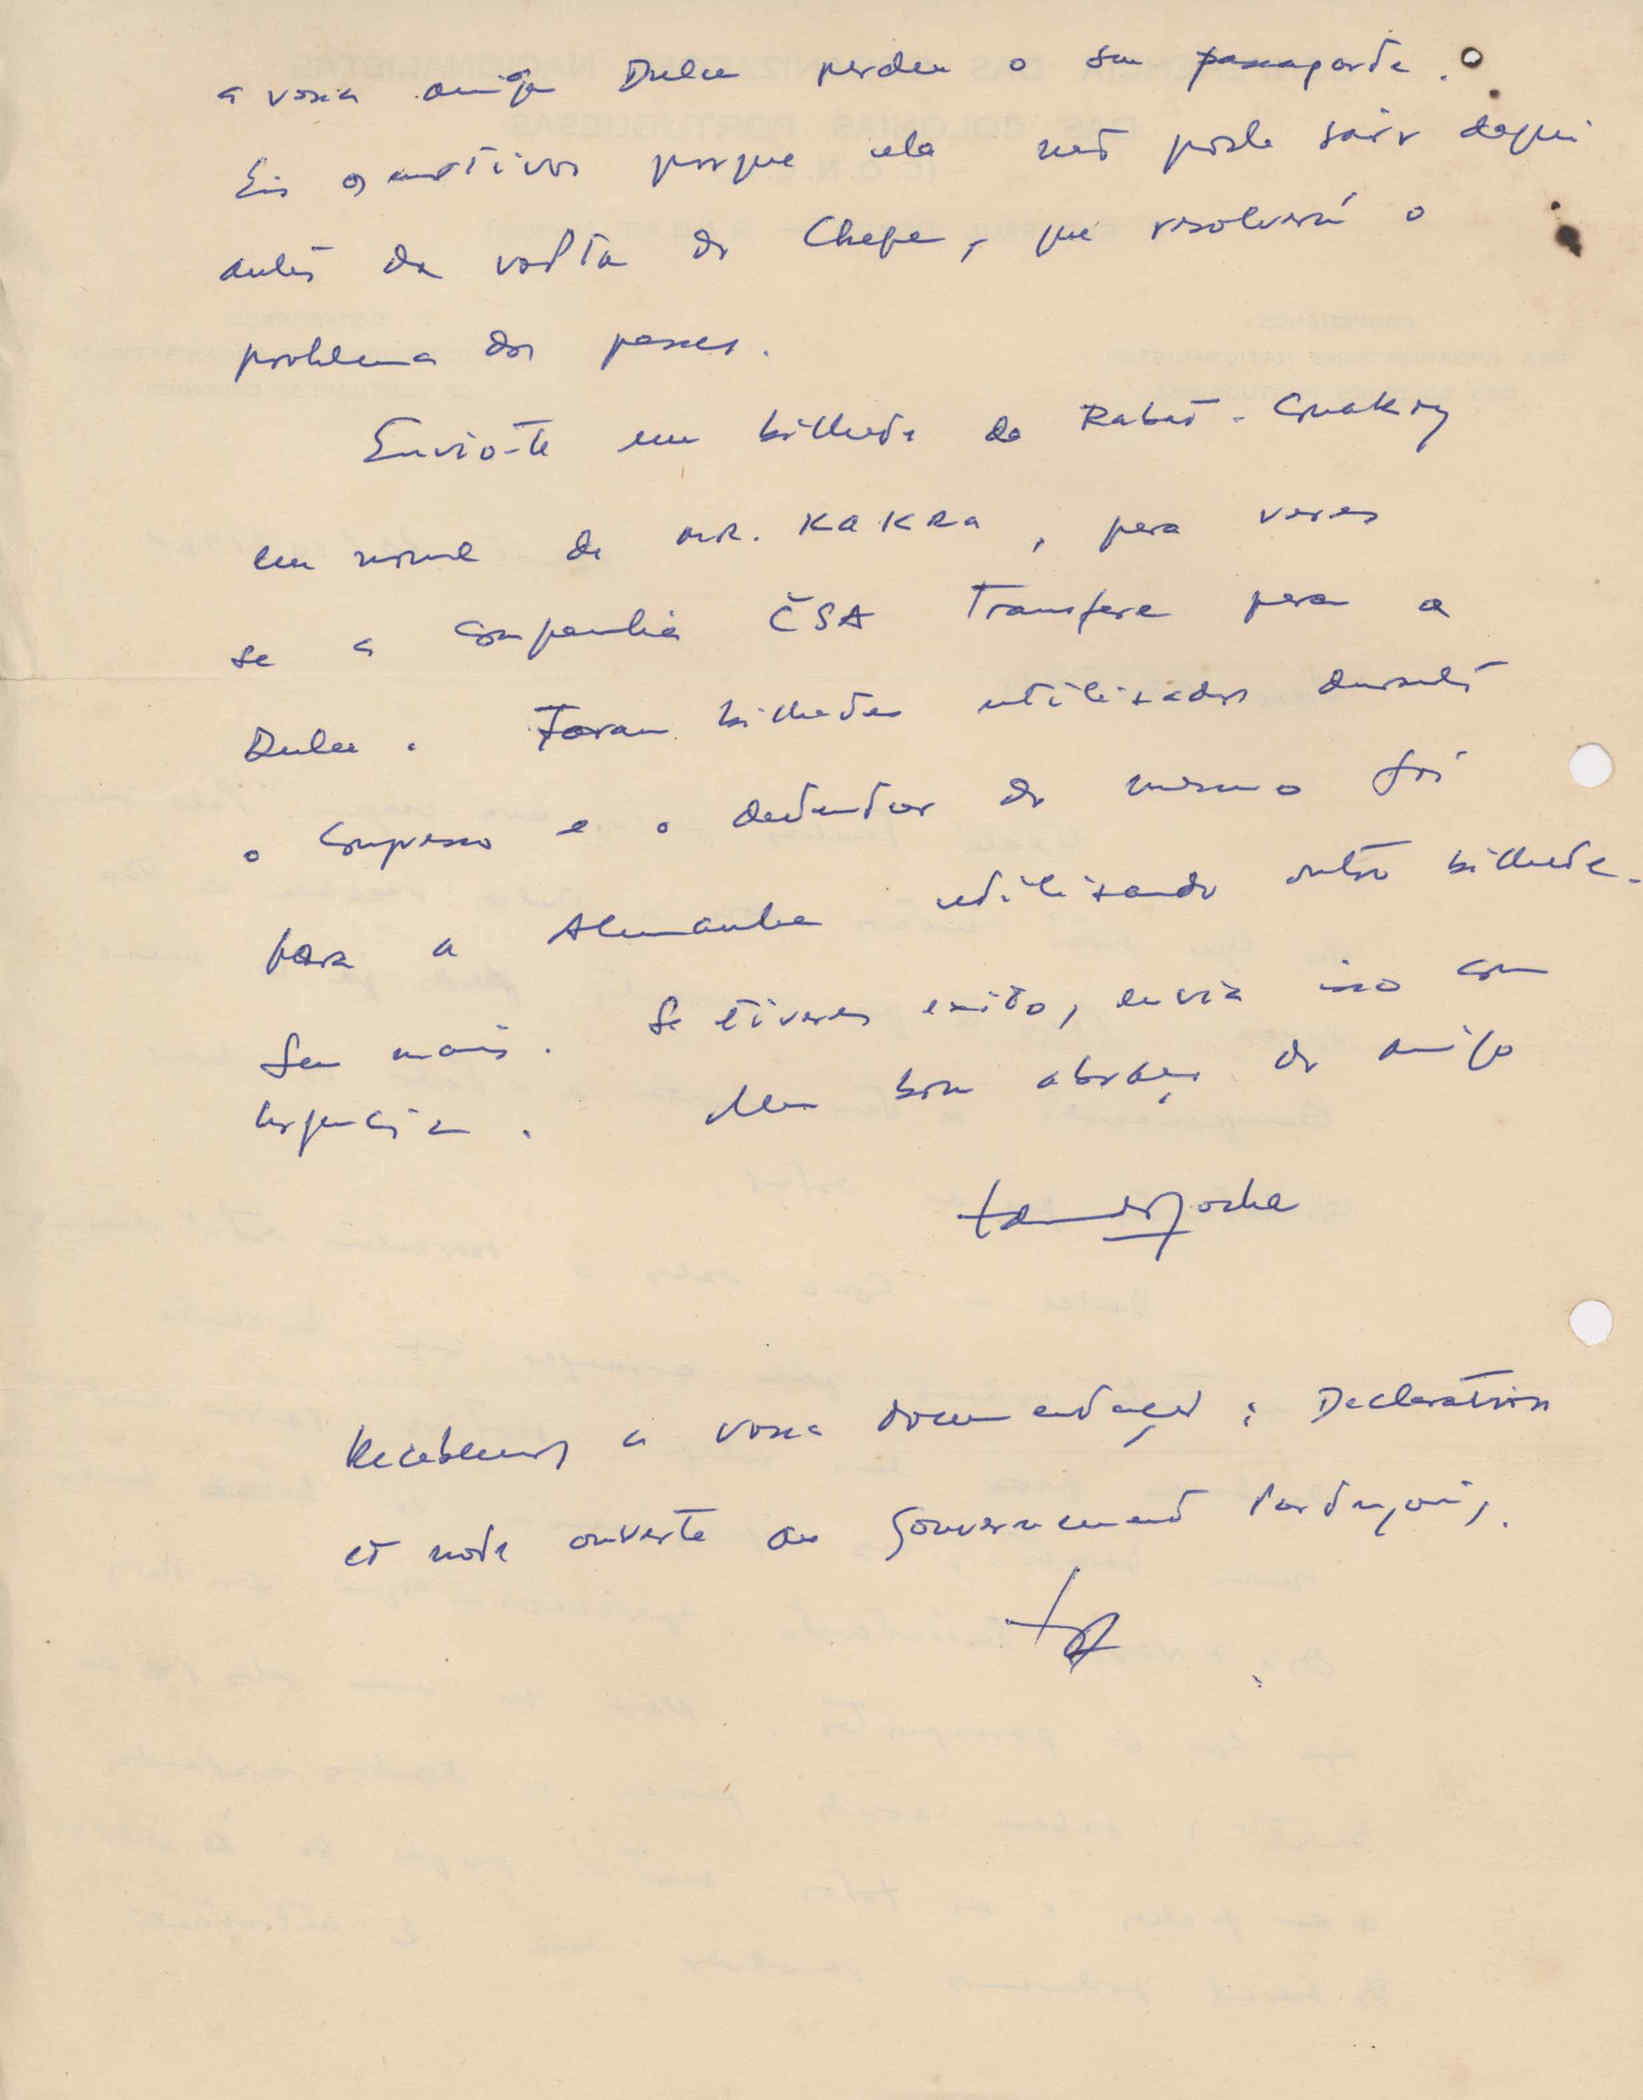 a vossa amiga Dulce perdeu o seu passaporte.
Eis os motivos porque ela não pode sair daqui
antes da volta do Chefe, que resolverá o
problema dos passes.
Envio-te um bilhete de Rabat-Conakry
em nome de MR. KAKRA, para veres
se a companhia ČSA Transfere para a
Dulce. Foram bilhetes utilizados durante
o Congresso e o detentor do mesmo foi
para a Alemanha utilizando outro bilhete.
Sem mais. Se tiveres exito, envia isso com
urgência. Um bom abraço do amigo
Recebemos a vossa documentação: Declaration
et note ouverte au Gouvernement Portugais,.